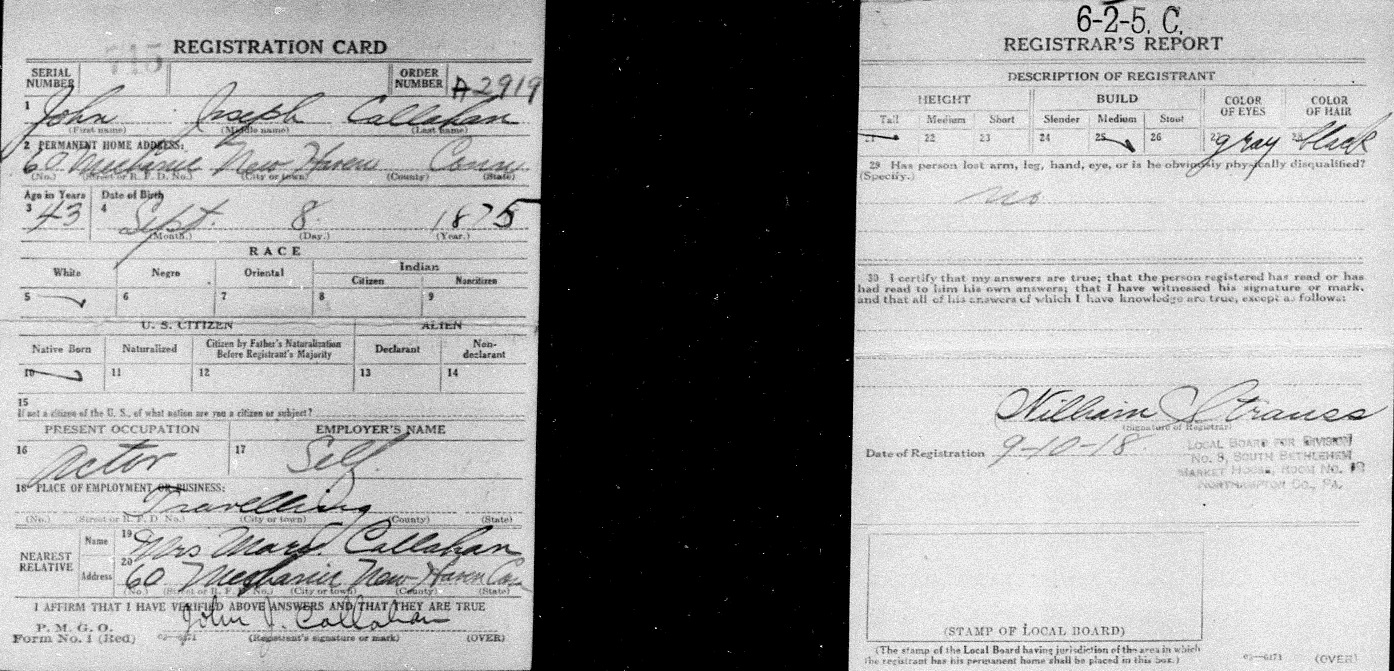 715
REGISTRATION CARD
SERIAL NUMBER
ORDER NUMBER A2919
1 John Joseph Callahan
(First name) (Middle name) (Last name)
2 PERMANENT HOME ADDRESS:
60 Mechanic New Haven Conn
(No.) (Street or R. F. D. No.) (City or town) (County) (State)
Age in Years Date of Birth
3 43 4 Sept. 8. 1875
(Month.) (Day.) (Year.)
RACE
White Negro Oriental Indian
Citizen Noncitizen
5 6 7 8 9
U. S. CITIZEN ALIEN
Native Born Naturalized Citizen by Father's Naturalization Before Registrant's Majority Declarant Non-declarant
10 11 12 13 14
15
If not a citizen of the U. S., of what nation are you a citizen or subject?
PRESENT OCCUPATION EMPLOYER'S NAME
16 Actor 17 Self
18 PLACE OF EMPLOYMENT OR BUSINESS:
Travelling
(No.) (Street or R. F. D No.) (City or town) (County) (State)
NEAREST RELATIVE
Name 19 Mrs Mary Callahan
Address 20 60 Mechanic New Haven Con
(No.) (Street or R. F. D. No.) (City or town) (County) (State)
I AFFIRM THAT I HAVE VERIFIED ABOVE ANSWERS AND THAT THEY ARE TRUE
John J. Callahan
P. M. G. O.
Form No. 1 (Red) 03-6171 (Registrant's signature or mark) (OVER)
6-2-5. C.
REGISTRAR'S REPORT
DESCRIPTION OF REGISTRANT
HEIGHT BUILD COLOR OF EYES COLOR OF HAIR
Tall Medium Short Slender Medium Stout
21 22 23 24 25 26 27 gray 28 black
29 Has person lost arm, leg, hand, eye, or is he obviously physically disqualified?
(Specify.)
no
30 I certify that my answers are true; that the person registered has read or has
had read to him his own answers; that I have witnessed his signature or mark,
and that all of his answers of which I have knowledge are true, except as follows:
William Strauss
(Signature of Registrar)
Date of Registration 9-10-18
LOCAL BOARD FOR DIVISION
No. 3, SOUTH BETHLEHEM
MARKET HOUSE, ROOM NO. 12
NORTHAMPTON CO., PA.
(STAMP OF LOCAL BOARD)
(The stamp of the Local Board having jurisdiction of the area in which
the registrant has his permanent home shall be placed in this box.) 03-6171 (OVER)